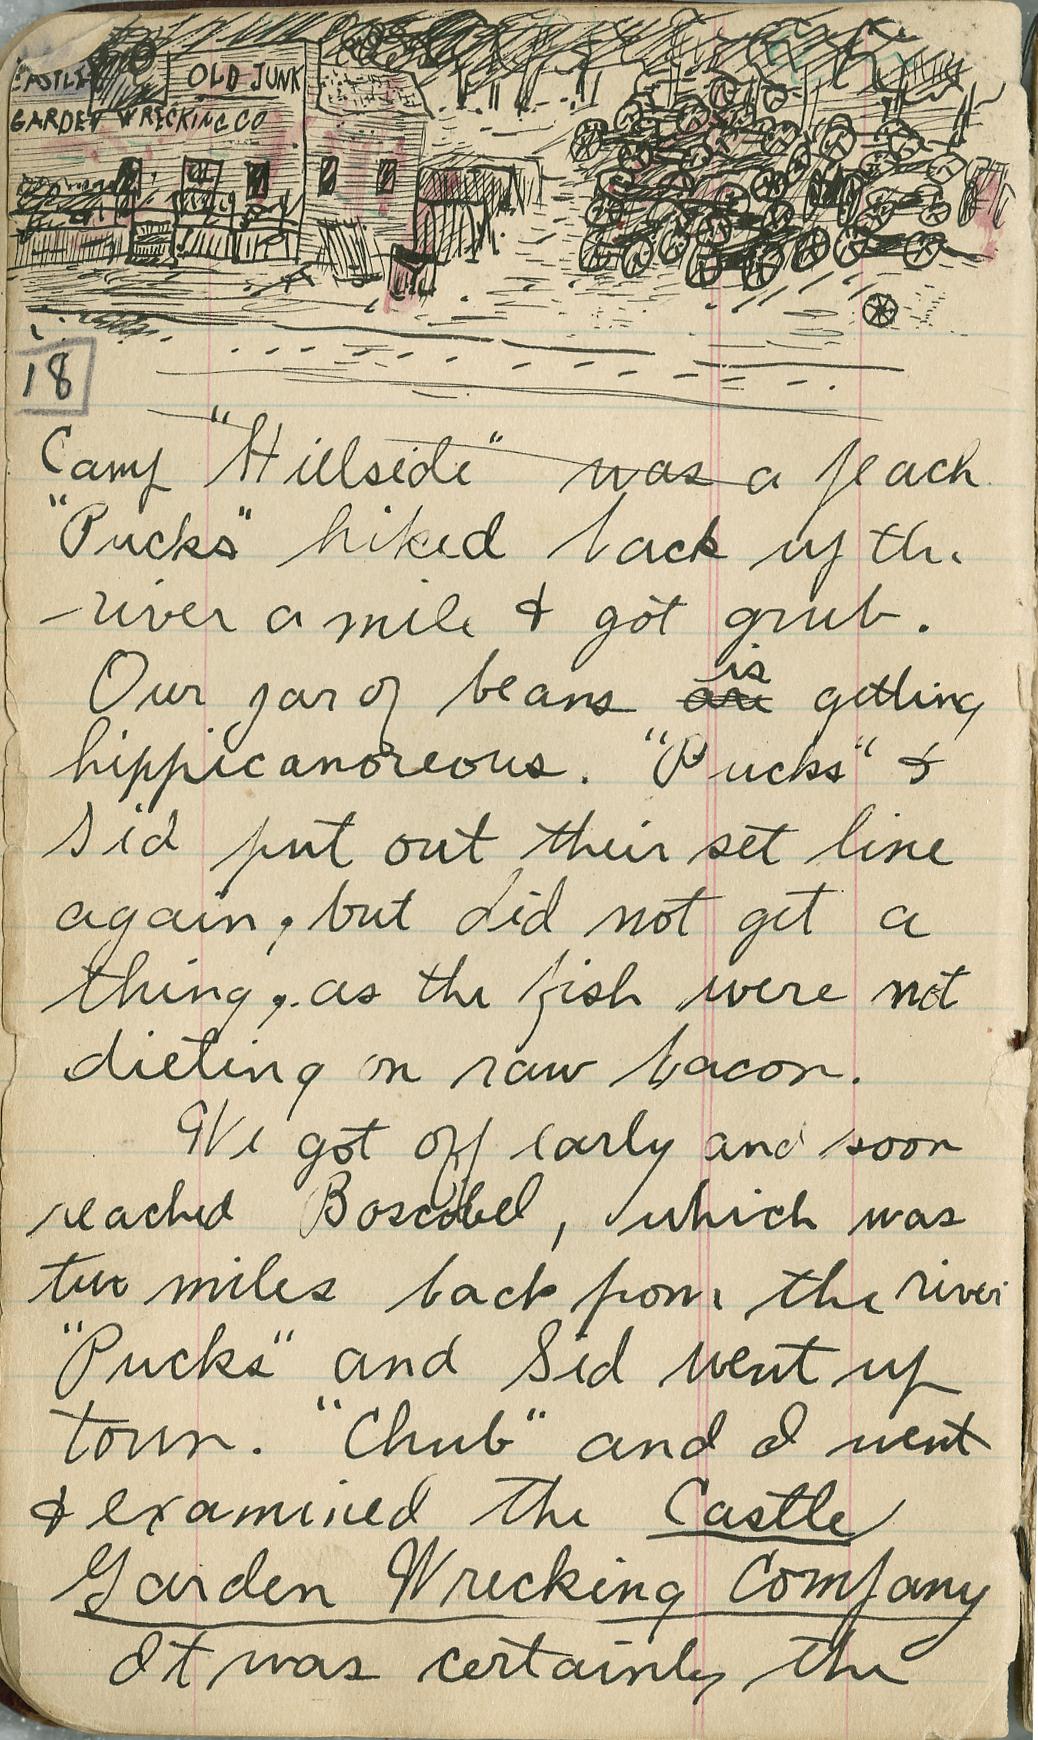 CASTLE
OLD JUNK
GARDEN WRECKING CO
18
Camp "Hillside" was a peach
"Pucks" hiked back up the
river a mile & got grub.
Our jar of beans are is getting
hippicanoreous. "Pucks" &
Sid put out their set line
again, but did not get a
thing, as the fish were not
dieting on raw bacon.
We got off early and soon
reached Boscobel, which was
two miles back from the river
"Pucks" and Sid went up
town. "Chub" and I went
& examined the Castle
Garden Wrecking Company
It was certainly the